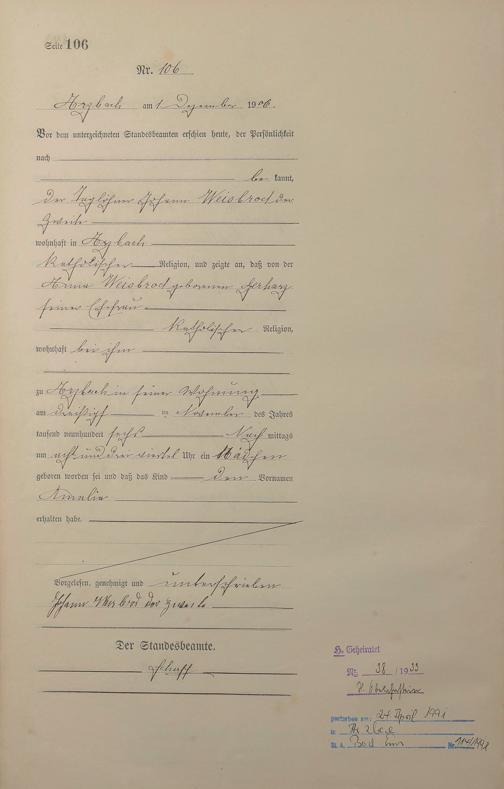 Seite 106
Nr. 106
Arzbach am 1 Dezember 1906.
Vor dem unterzeichneten Standesbeamten erschien heute, der Persönlichkeit
nach
be kannt,
der Taglöhner Johann Weisbrod der
Zweite
wohnhaft in Arzbach
katholischer Religion, und zeigte an, daß von der
Anna Weisbrod geborenen Gerharz
seiner Ehefrau
katholischer Religion,
wohnhaft bei ihm
zu Arzbach in seiner Wohnung
am dreißigsten November des Jahres
tausend neunhundert sechs Nach mittags
um acht und drei viertel Uhr ein Mädchen
geboren worden sei und daß das Kind den Vornamen
Amalie
erhalten habe.
Vorgelesen, genehmigt und unterschrieben
Johann Weisbrod der Zweite
Der Standesbeamte.
H. Geheiratet
Nr. 38 /1933
gestorben am: 24. April 1991
in
St. A. Bad Ems Nr.